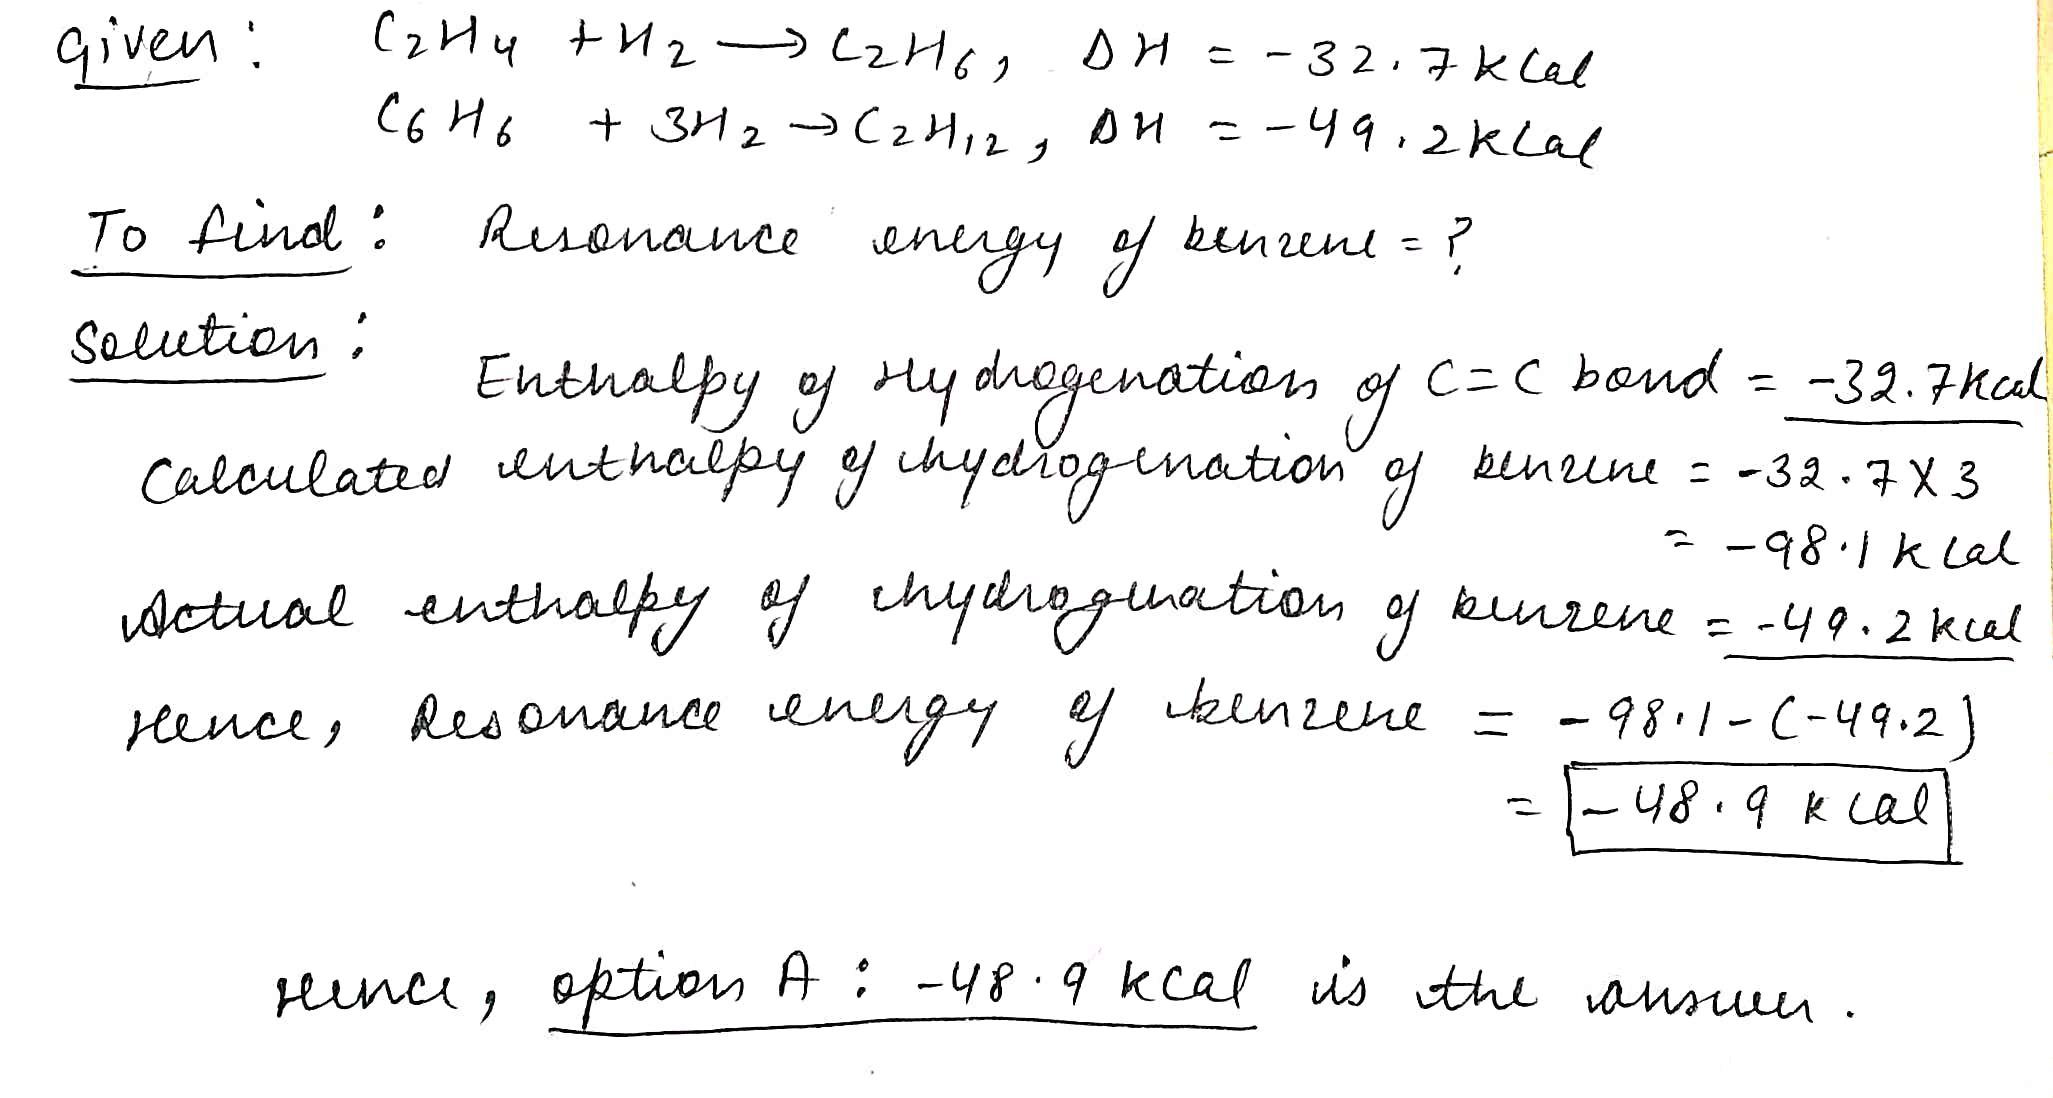 Given: C2H4 + H2 → C2H6, ΔH = -32.7 kCal
C6H6 + 3H2 → C2H12, ΔH = -49.2 kCal
To find: Resonance energy of benzene = ?
Solution:
Enthalpy of Hydrogenation of C=C bond = -32.7 kcal
Calculated enthalpy of hydrogenation of benzene = -32.7 X 3
= -98.1 kCal
Actual enthalpy of hydrogenation of benzene = -49.2 kcal
Hence, Resonance energy of benzene = -98.1-(-49.2)
= -48.9 kcal
Hence, option A: -48.9 kcal is the answer.